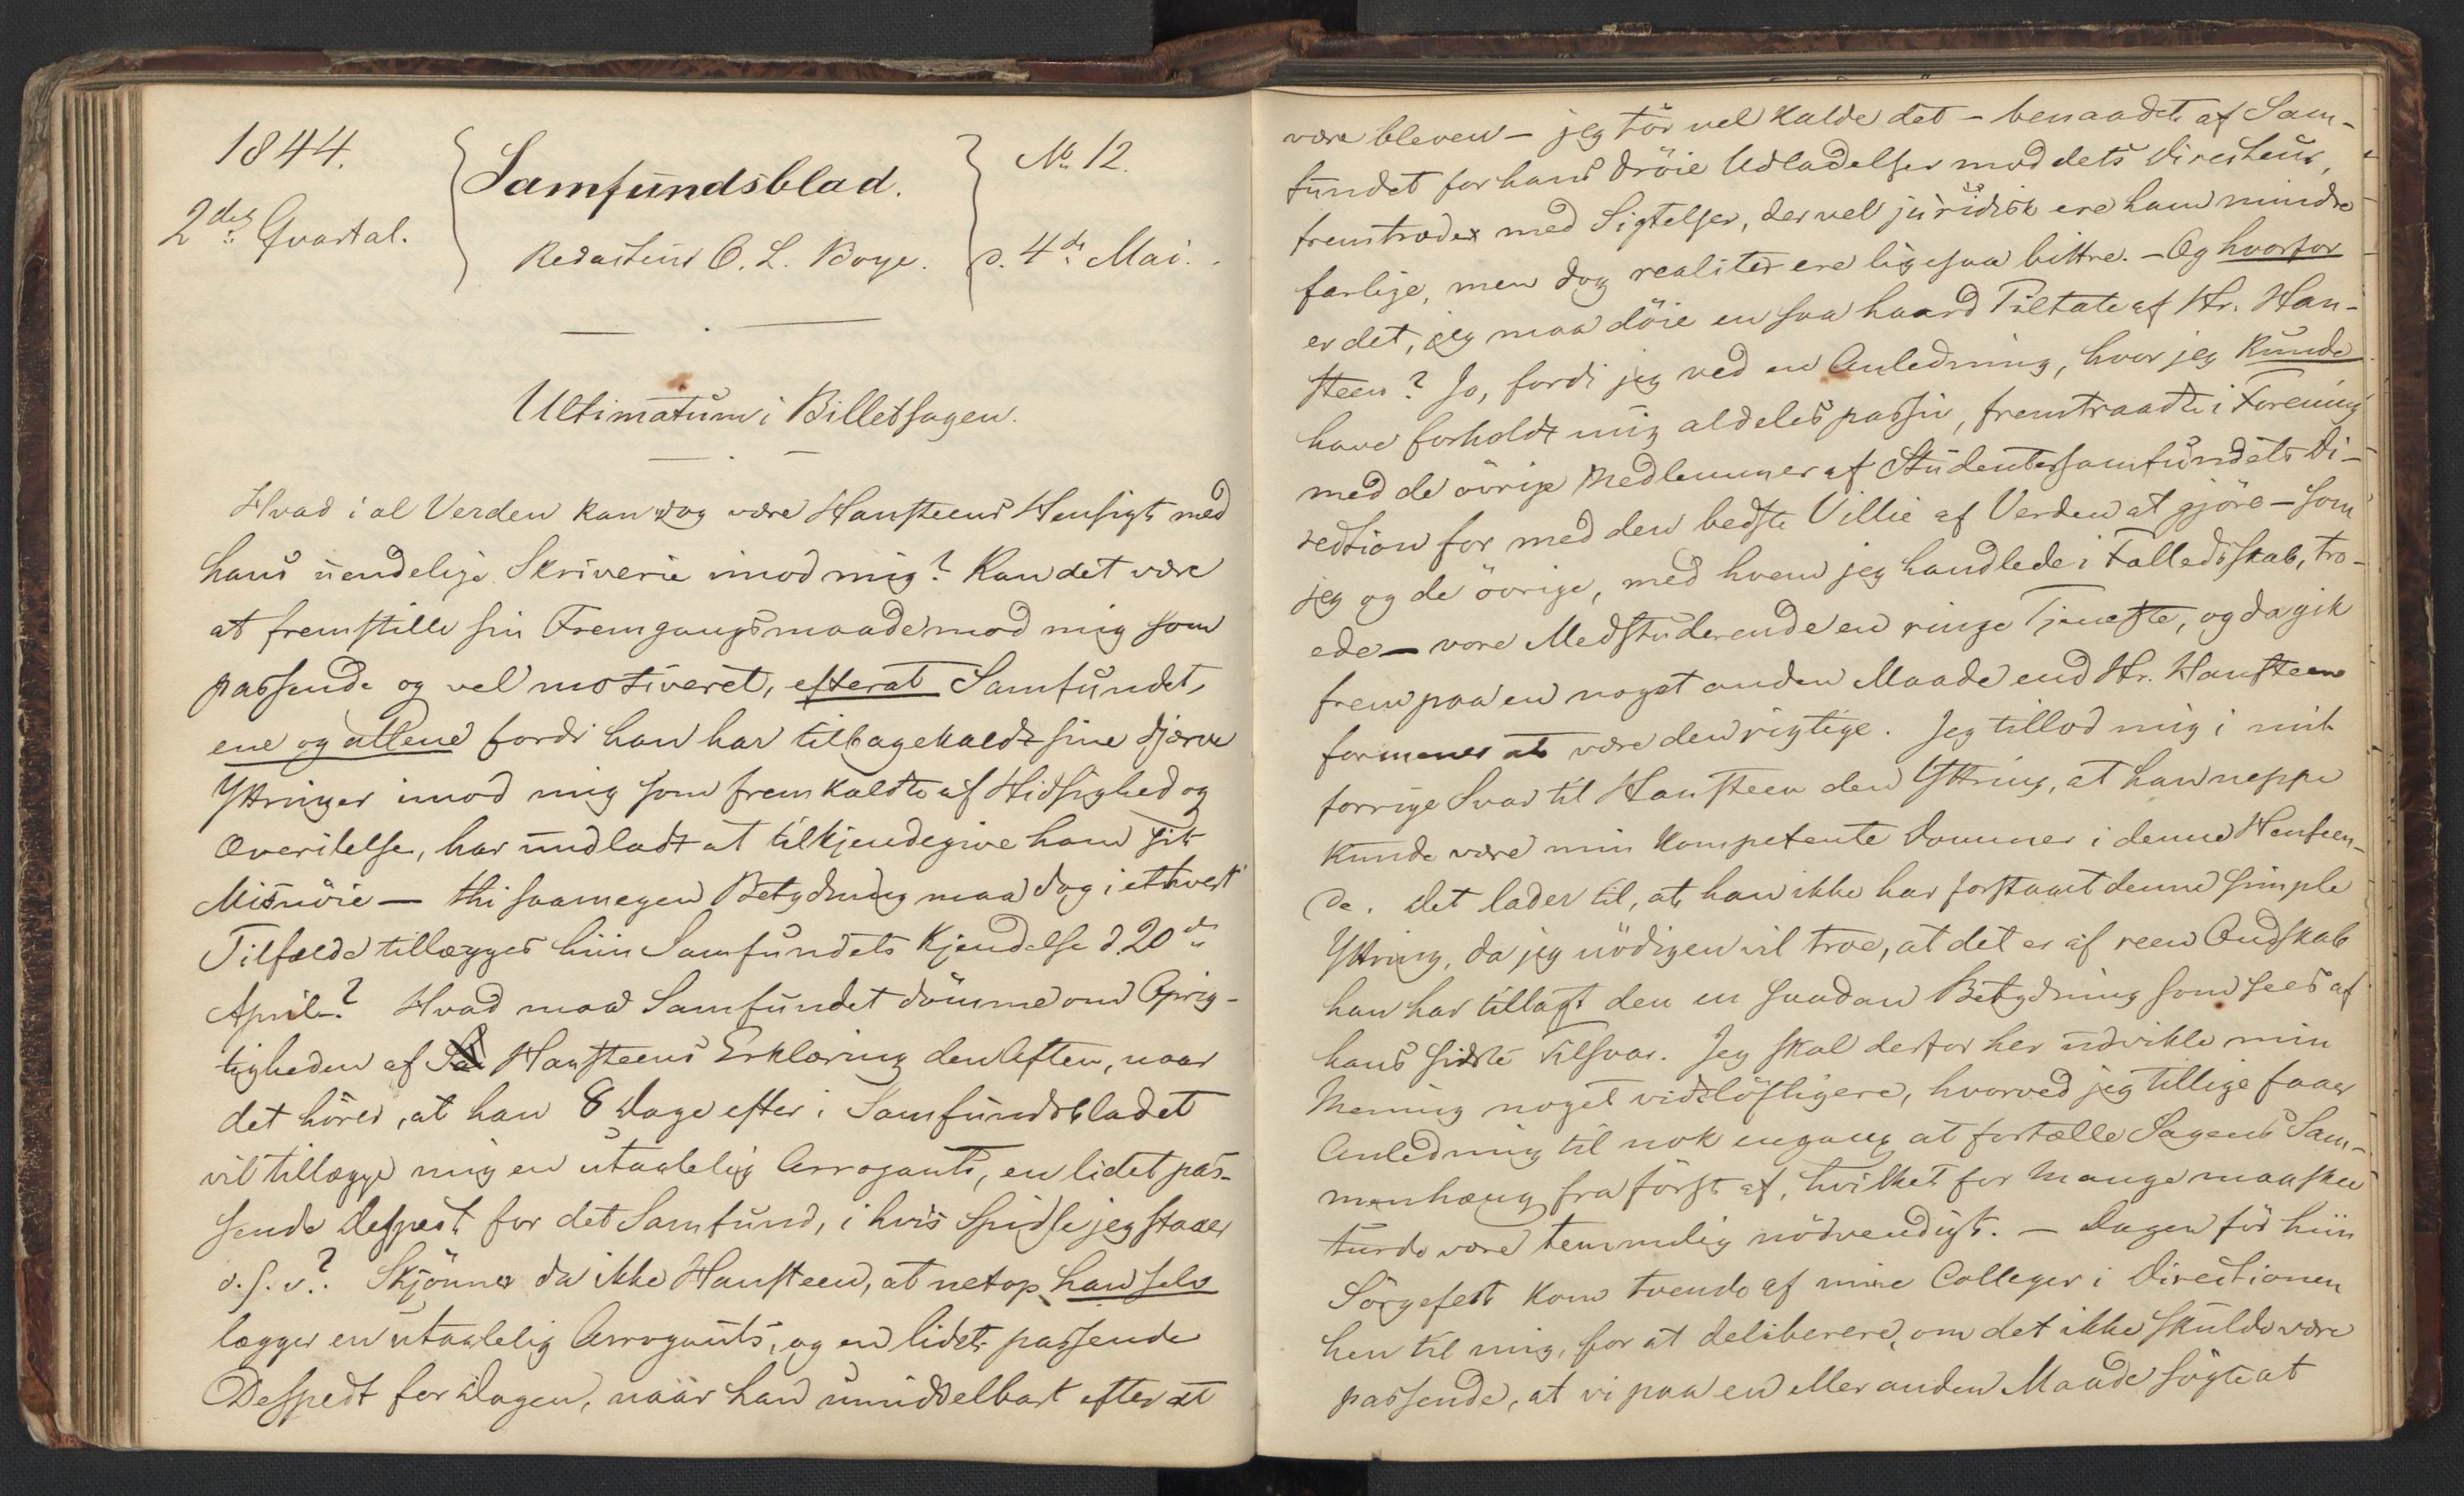 1844.
2det Qvartal.
Samfundsblad.
Redacteur O. L. Boye.
No. 12.
d. 4de Mai.
Ultimatum i Billetsagen.
Hvad i al Verden kan dog være Hansteens Hensigt med
hans uendelige Skriverie imod mig? Kan det være
at fremstille sin Fremgangsmaade mod mig som
passende og vel motiveret, efterat Samfundet,
ene og allene fordi han har tilbagekaldt sine djærve
Yttringer imod mig som fremkaldte af Hidsighed og
Overilelse, har undladt at tilkjendegive ham sit
Misnöie — thi saamegen Betydning maa dog i ethvert
Tilfælde tillægges hiin Samfundets Kjendelse d. 20de
April? Hvad maa Samfundet dömme om Oprig-
tigheden af Hansteens Erklæring den Aften, naar
det hörer, at han 8 Dage efter i Samfundsbladet
vil tillægge mig en utaalelig Arrogants, en lidet pas-
sende Despect for det Samfund, i hvis Spidse jeg staaer
o. s. v.? Skjönner da ikke Hansteen, at netop han selv
lægger en utaalelig Arrogants, og en lidet passende
Despect for Dagen, naar han umiddelbart efter at
være bleven — jeg tör vel kalde det — benaadet af Sam-
fundet for hans dröie Udladelser mod dets Directeur,
fremtræder med Sigtelser, der vel juridisk ere ham mindre
farlige, men dog realiter ere ligesaa bittre. — Og hvorfor
er det, jeg maa döie en saa haard Tiltale af Hr. Han-
steen? Jo, fordi jeg ved en Anledning, hvor jeg kunde
have forholdt mig aldeles passiv, fremtraadte i Forening
med de övrige Medlemmer af Studentersamfundets Di-
rection for med den bedste Villie af Verden at gjöre — som
jeg og de övrige, med hvem jeg handlede i Fælledsskab, tro-
ede — vore Medstuderende en ringe Tjeneste, og da gik
frem paa en noget anden Maade end Hr. Hansteen
formener at være den rigtige. Jeg tillod mig i mit
forrige Svar til Hansteen den Yttring, at han neppe
kunde være min kompetente Dommer i denne Henseen-
de. Det lader til, at han ikke har forstaaet denne simple
Yttring, da jeg nödigen vil troe, at det er af reen Ondskab
han har tillagt den en saadan Betydning som sees af
hans sidste Tilsvar. Jeg skal derfor her udvikle min
Mening noget vidtlöftigere, hvorved jeg tillige faaer
Anledning til nok engang at fortælle Sagens Sam-
menhæng fra först af, hvilket for Mange maaskee
turde være temmelig nödvendigt. — Dagen för hiin
Sörgefest kom tvende af mine Colleger i Directionen
hen til mig, for at deliberere, om det ikke skulde være
passende, at vi paa en eller anden Maade sögte at